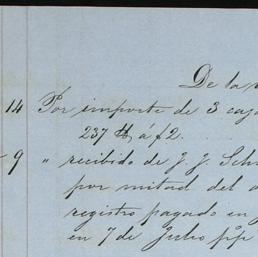 De la
14 Por importe de 3 caj
237 ℔ á f 2.
9 " recibido de J. J. Sch
por mitad del
registro pagado en
en 7 de Julio ppº